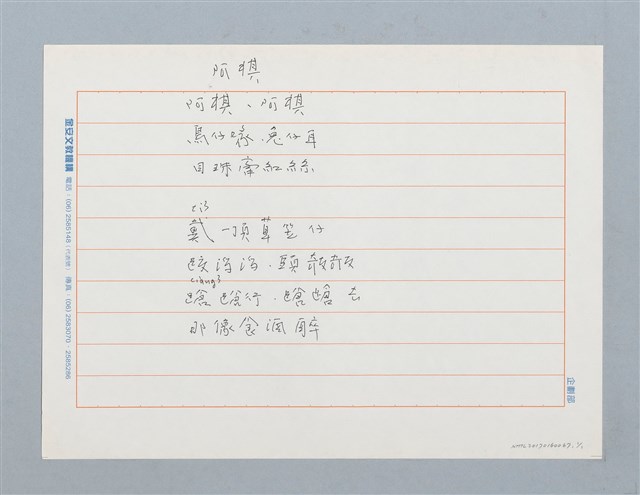 阿棋
阿棋、阿棋
馬仔喙.兔仔耳
目珠牽紅絲
戴一頂草笠仔
跤浮浮.頭敧敧
蹌蹌行.蹌蹌去
那像食酒醉
金安文教機構 電話:(06)2585148(代表號) 傳真:(06)2583070・2585286
企劃部